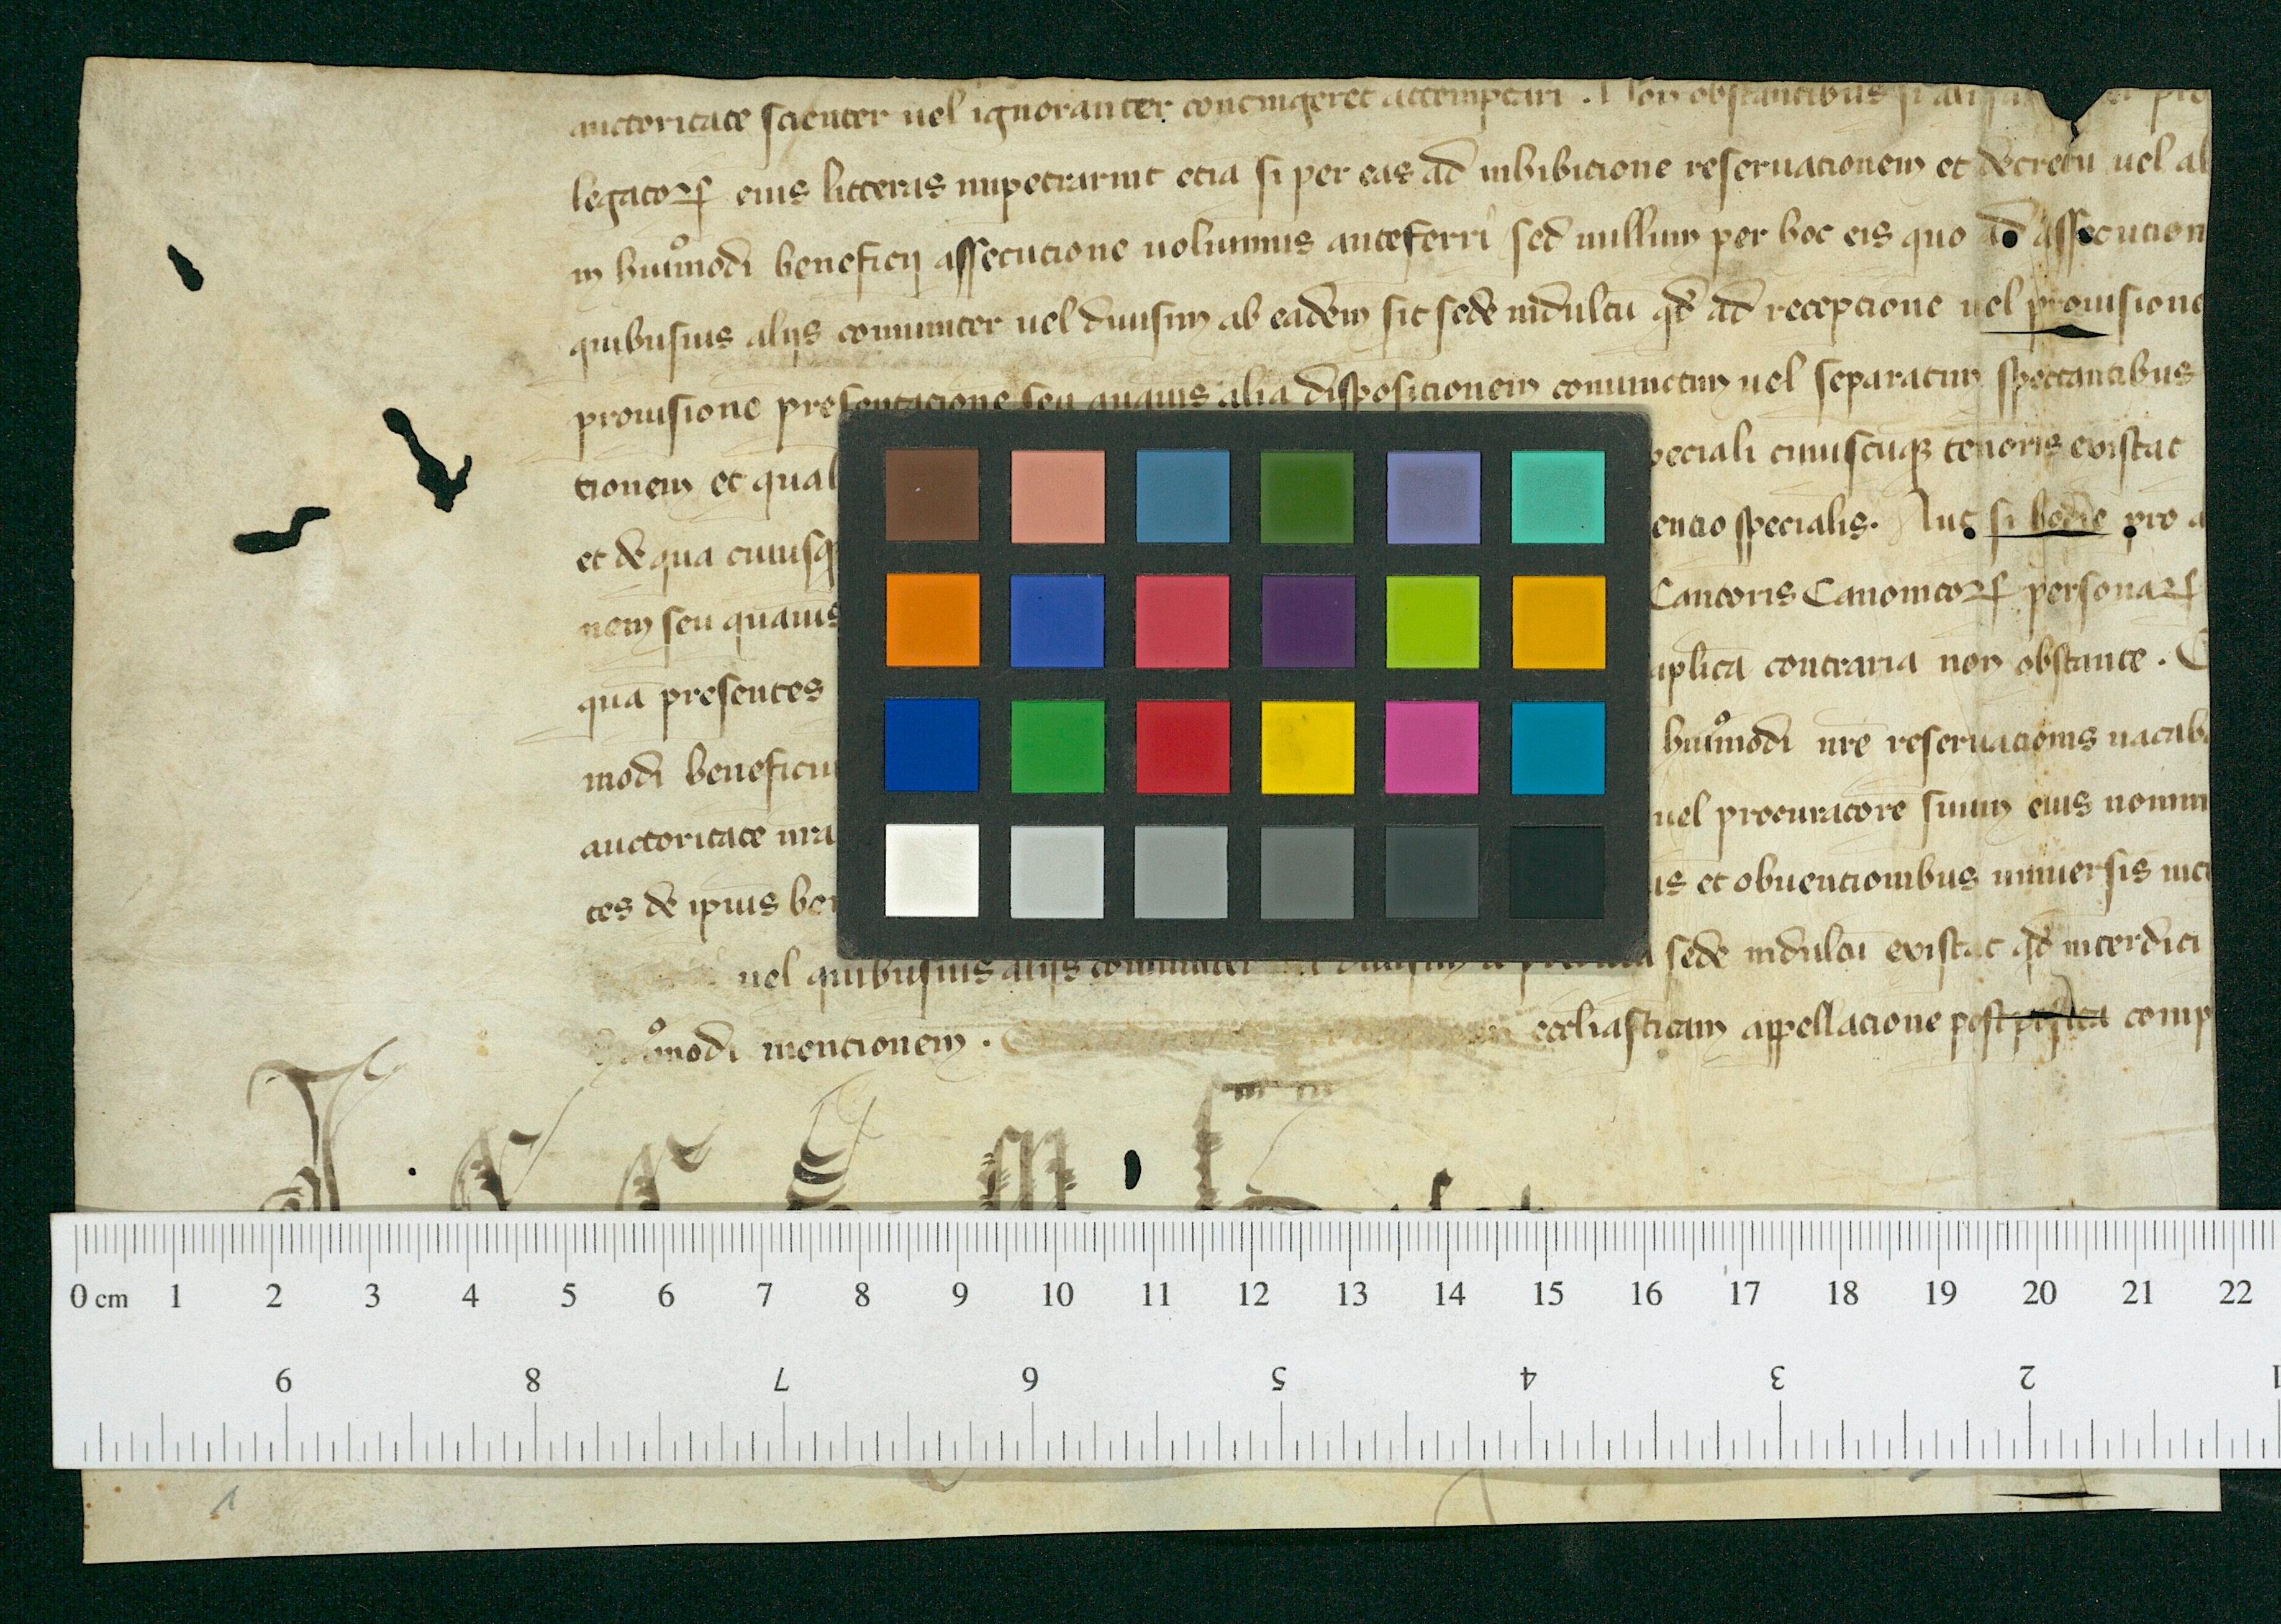 auctoritate scienter uel ignoranter contingeret attemptari . Non obstantibus si
legatorꝝ eius litteras impetrarint etiā si per eas ad inhibicionē reseruationem et decretū uel al
in huiꝰmodi beneficij assecucione uolumus anteferri sed nullum per hoc eis quo ad assecution
quibusuis alijs comuniter uel diuisim ab eadem sit sede indultū qd ad recepcionē uel prouisionē
prouisionē presentacionē seu quauis aliā disposicionem coniunctim uel separatim spectantibus
tionem et qual peciali cuiuscūqꝫ tenoris existat
et de qua cuiusqꝫ encio specialis. Aut si hodie pro a
nem seu quāuis Cantoris Canonicorꝝ personarꝝ
quā presentes aplica contraria non obstante .
modi beneficiu huiꝰmodi nrē reseruacionis uacab
auctoritate nrā uel procuratorē suum eius nomin
tes de ipius ben is et obuentionibus uniuersis inte
uel quibusuis alijs comuniter uel diuisim a sede indultū existat qd interdici
modi mentionem . ecclesiasticam appellacione postposita comp
0 cm 1 2 3 4 5 6 7 8 9 10 11 12 13 14 15 16 17 18 19 20 21 22
9 8 7 6 5 4 3 2 1
1